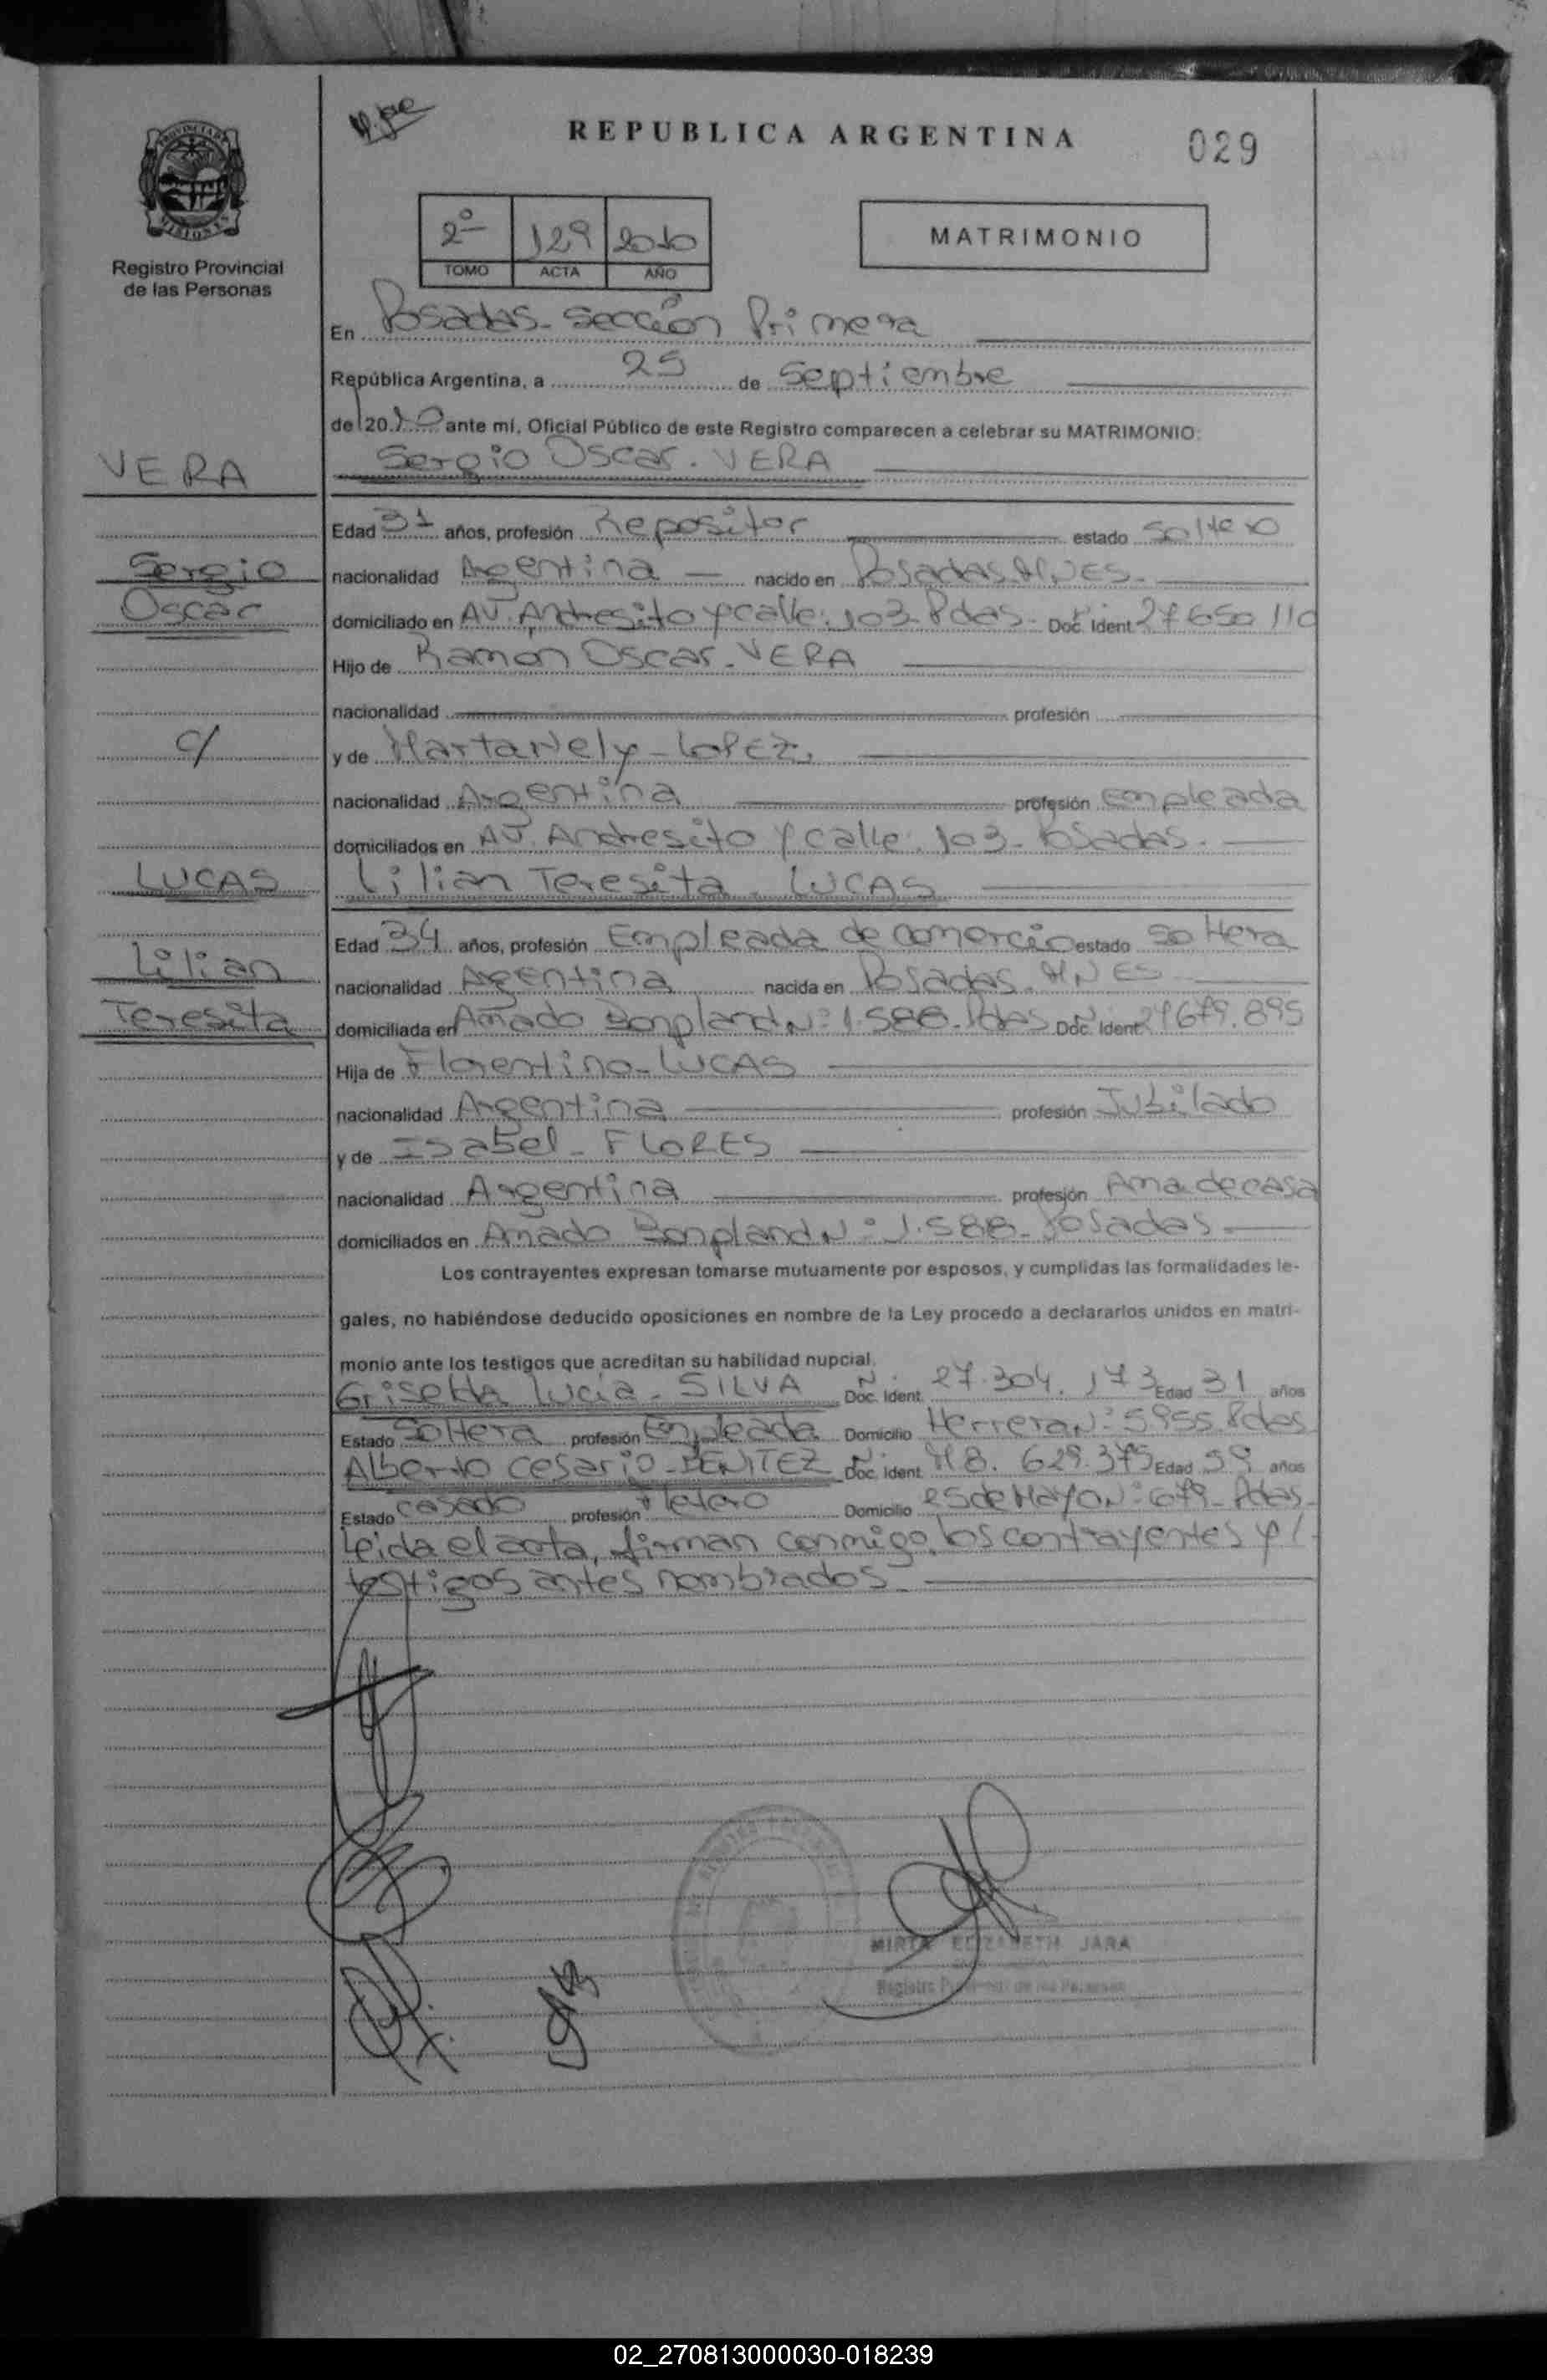 REPUBLICA ARGENTINA
029
PROVINCIA DE MISIONES
Registro Provincial
de las Personas
2º 129 2010
TOMO ACTA AÑO
MATRIMONIO
En Posadas - Sección Primera
República Argentina, a 25 de Septiembre
de 2010 ante mí, Oficial Público de este Registro comparecen a celebrar su MATRIMONIO:
VERA Sergio Oscar. VERA
Edad 31 años, profesión Repositor estado Soltero
Sergio nacionalidad Argentina nacido en Posadas. MNES.
Oscar domiciliado en AV. Andresito y calle: 103 Pdas. Doc. Ident. 27650110
Hijo de Ramon Oscar. VERA
nacionalidad profesión
c/ y de Marta Nely - LOPEZ.
nacionalidad Argentina profesión Empleada
domiciliados en AV. Andresito y calle: 103 - Posadas.
LUCAS Lilian Teresita. LUCAS
Edad 34 años, profesión Empleada de comercio estado Soltera
Lilian nacionalidad Argentina nacida en Posadas. MNES
Teresita domiciliada en Amado Bonpland Nº 1.588 - Pdas Doc. Ident. 24679.895
Hija de Florentino - LUCAS
nacionalidad Argentina profesión Jubilado
y de Isabel - FLORES
nacionalidad Argentina profesión Ama de casa
domiciliados en Amado Bonpland Nº 1.588 - Posadas
Los contrayentes expresan tomarse mutuamente por esposos, y cumplidas las formalidades le-
gales, no habiéndose deducido oposiciones en nombre de la Ley procedo a declararlos unidos en matri-
monio ante los testigos que acreditan su habilidad nupcial.
Griselda Lucia - SILVA Doc. Ident. 27.304.173 Edad 31 años
Estado Soltera profesión Empleada Domicilio Herrera Nº 5955. Pdas
Alberto Cesario - BENITEZ Doc. Ident. M8. 629.375 Edad 59 años
Estado Casado profesión Fletero Domicilio 25 de Mayo Nº 679 - Pdas.
Leida el acta, firman conmigo, los contrayentes y/
testigos antes nombrados.
MIRTA ELIZABETH JARA
Registro Provincial de las Personas
02_270813000030-018239